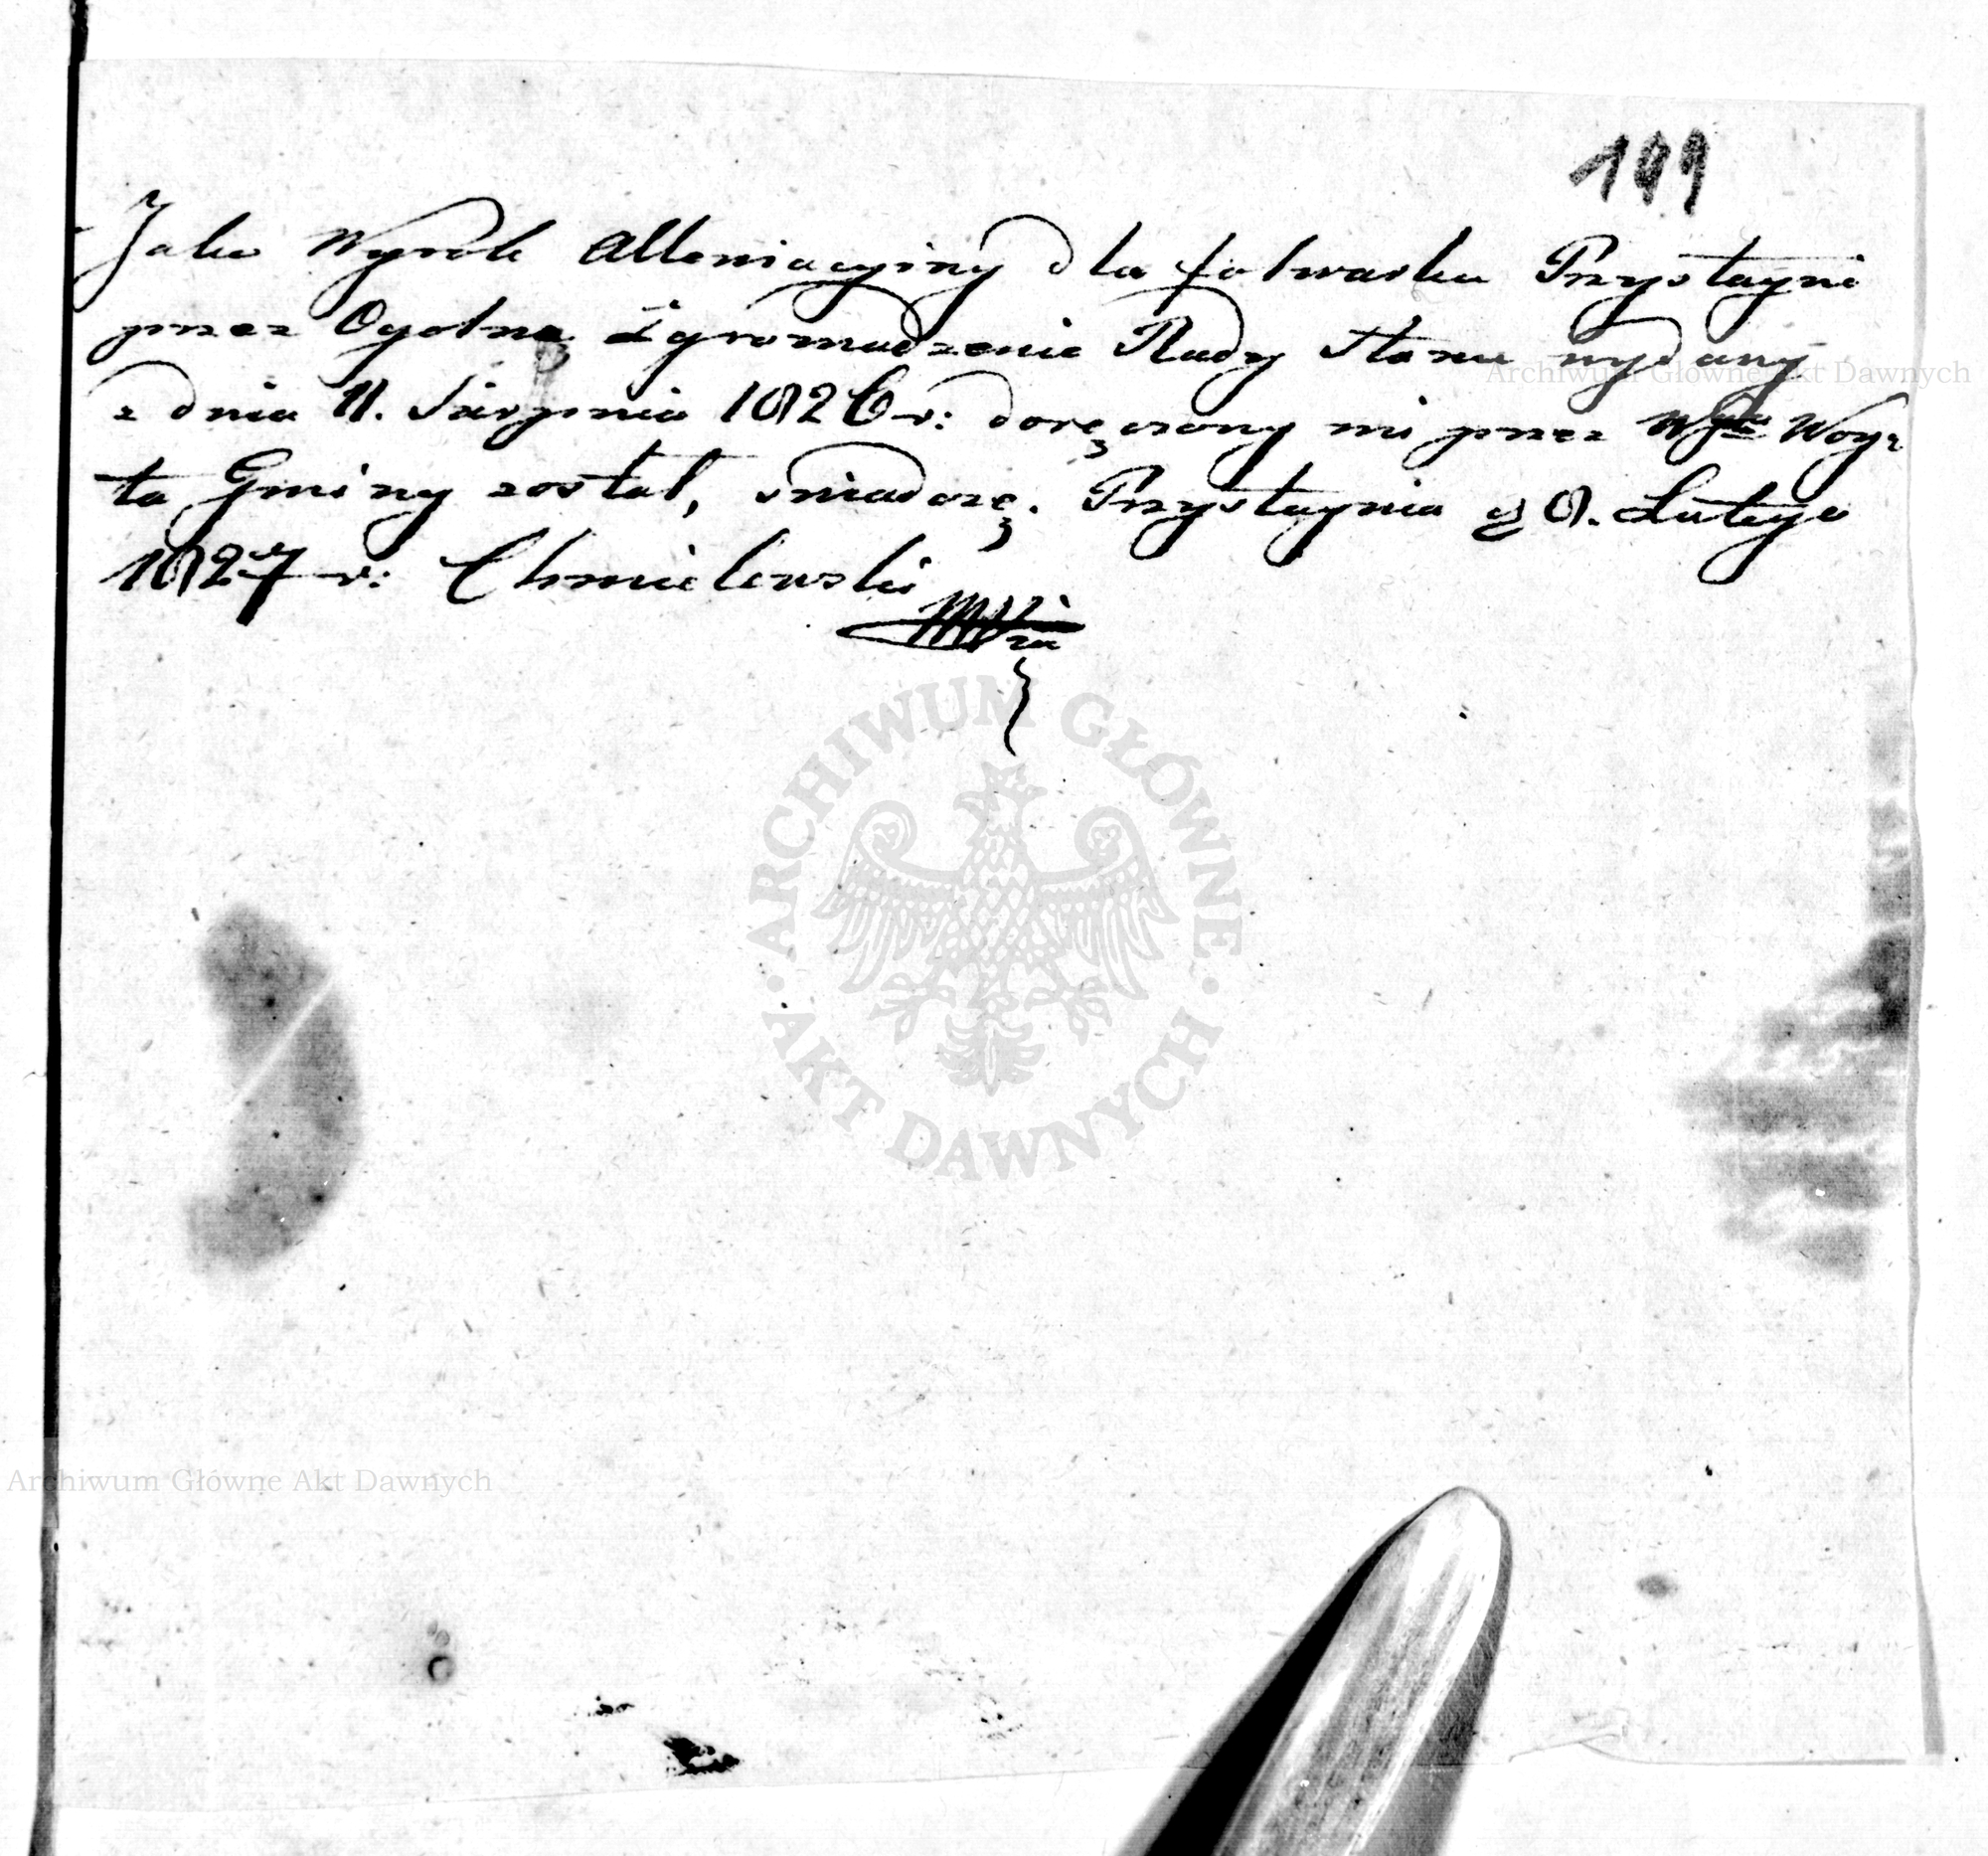 199
Jako Wyrok Allewiacyiny dla folwarku Przystayni
przez Ogolne Zgromadzenie Rady Stanu wydany
z dnia 11. Sierpnia 1826 r: doręczony mi przez Wgo Woy=
ta Gminy został, swiadczę. Przystaynia d 8. Lutego
1827 r: Chmielewski
Archiwum Główne Akt Dawnych
ARCHIWUM GŁÓWNE · AKT DAWNYCH ·
Archiwum Główne Akt Dawnych